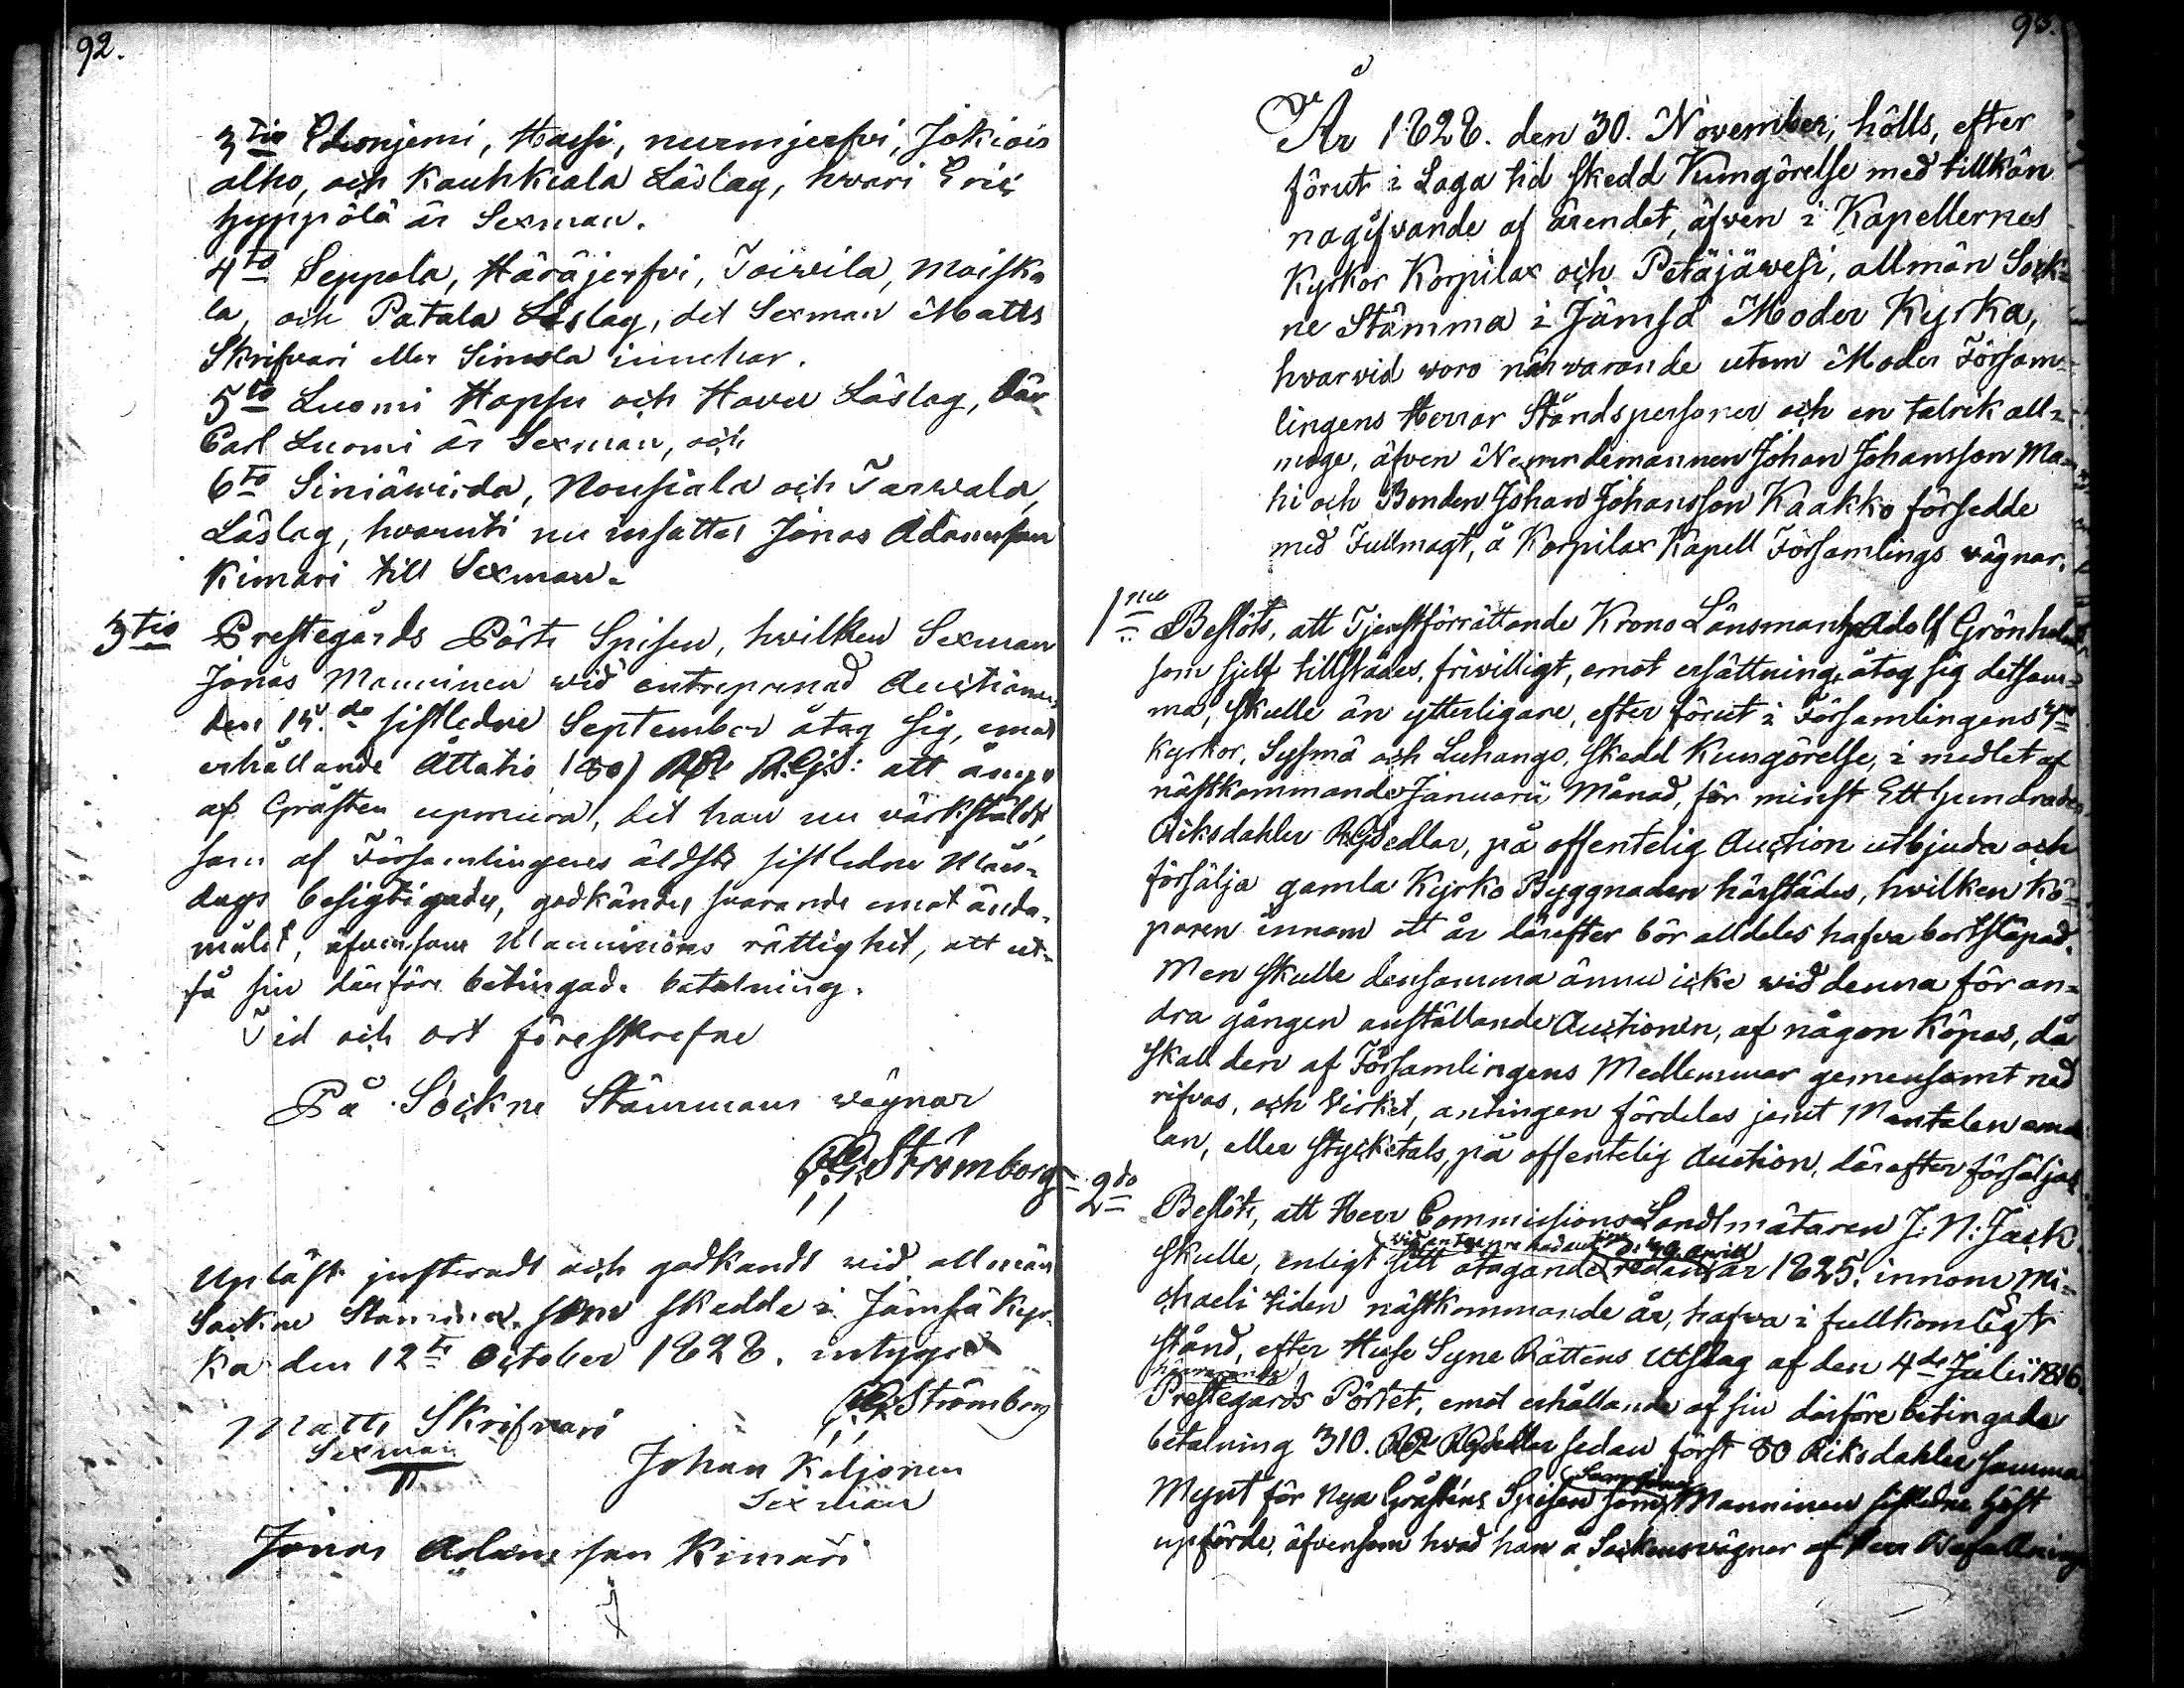 92.
3tio Edesnjemi, Hassi, nurmjerfvi, Jokiois
alho, och Kauhkiala Läslag, hvari Eric
Hyppölä är Sexman.
4to Seppola, Häräjerfvi, Toiwila, Maiska
la, och Patala Läslag, det Sexman Matts
Skrifvari eller Simola innehar.
5to Luomi Hopsu och Haveri Läslag, där
Carl Luomi är Sexman, och
6to Siniäwirda, Nousiala och Tarwala,
Läslag, hvaruti nu insattes Jonas Adamsson
Kimari till Sexman.
3tio Prestegårds Pörts Spisen, hvilken Sexman
Jonas Manninen wid entreprenad Auctionen
den 15.de sistledne September åtog sig, emot
erhållande Åttatio (80) RD R.G.S: att ånyo
af Gråsten upmura, det han nu värkstäldt,
som af Församlingens äldste sistledne Mån-
dags besigtigades, godkändes svarande emot ända-
målet, äfvensom Manninens rättighet, att ut-
få sin därföre betingade betalning.
Tid och ort föreskrefne
På Sockne Stämmans vägnar
Strömborg
Upläst justeradt och godkandt vid allmän
Sockne Stamma, som skedde i Jämsä Kyr-
ka den 12te October 1828. intyga
Strömborg
Matts Skrifvari
Sexman
Johan Kiljonen
Sexman
Jonas Adamsson Kimari
93.
År 1828. den 30. November, hölls, efter
förut i Laga tid skedd Kungörelse med tillkän
nagifvande af ärendet, äfven i Kapellernes
Kyrkor Korpilax och Petäjäwesi, allmän Sock-
ne Stämma i Jämsä Moder Kyrka,
hvarvid voro närvarande utom Moder Försam-
lingens Herrar Ståndspersoner och en talrik all-
moge, äfven Nämndemannen Johan Johansson Ma-
hi och Bonden Johan Johansson Kaakko försedde
med Fullmagt, å Korpilax Kapell Församlings vägnar.
1mo Beslöts, att Tjenstförrättande Krono Länsman Adolf Grönholm
som sjelf tillstädes, friwilligt, emot ersättning, åtog sig detsam-
ma, skulle än ytterligare, efter förut i Församlingens
Kyrkor, Sysmä och Luhango, skedd Kungörelse, i medlet af
nästkommande Januarii Månad, för minst Ett hundrade
Riksdahler RGSedlar, på offentelig Auction utbjuda och
försälja gamla Kyrko Byggnaden härstädes, hvilken Kö-
paren innom ett år därefter bör alldeles hafva bortsläpad.
Men skulle densamma ännu icke wid denna för an-
dra gången anställande Auctionen, af någon Köpas, då
skall den af Församlingens Medlemmar gemensamt ned
rifvas, och Virket, antingen fördelas jemt Mantalen emel
lan, eller stycketals, på offentelig Auction, därefter försäljas.
2do Beslöts, att Herr Commissions Landtmätaren J: N: Jack
skulle, enligt sitt åtagande 1825. innom Mi-
chaeli tiden nästkommande år, hafva i fullkomligt
stånd, efter Huse Syne Rättens Utslag af den 4de Julii 1816
Prestegårds Pörtet, emot erhållande af sin därföre betingade
betalning 310. RD RGSedlar sedan först 80 Riksdahler samma
Mynt för Nya Gråstens Spisen som Manninen sistledne höst
upförde, äfvensom hvad han å Sockens vägnar af Herr Befallnings